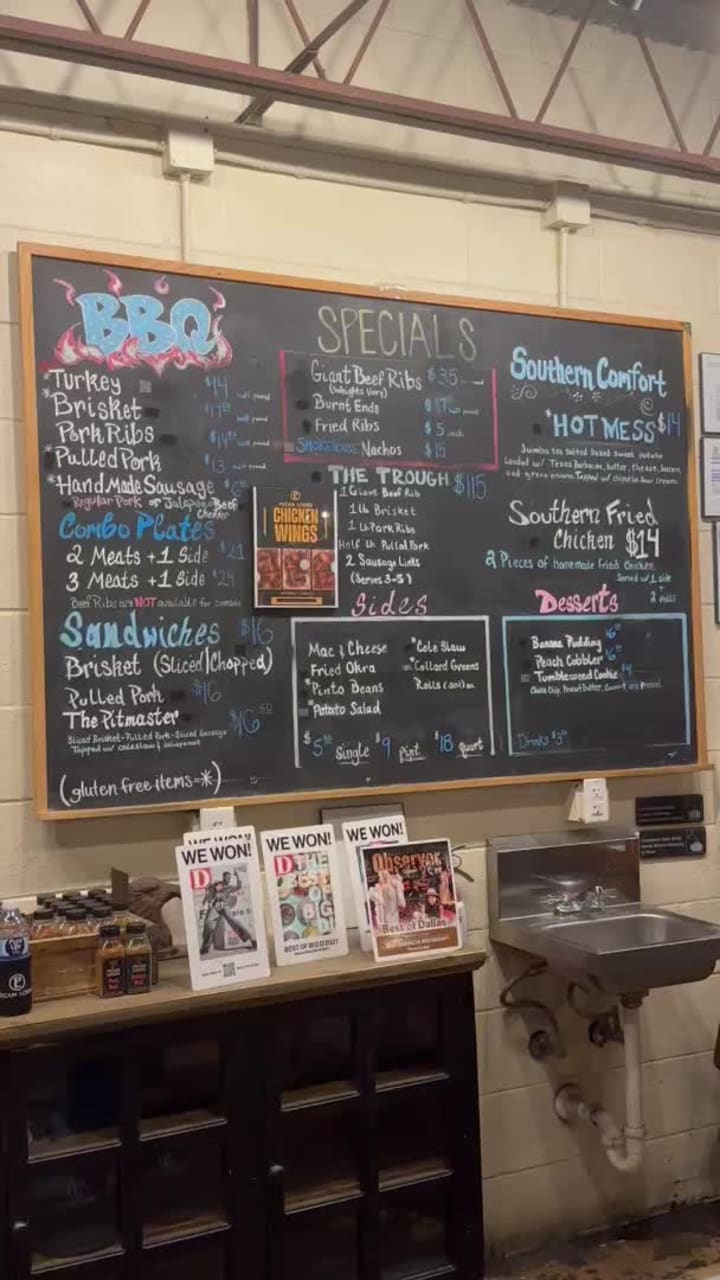 BBQ
*Turkey $14 half pound
*Brisket half pound
Pork Ribs half pound
*Pulled Pork $13 half pound
*Hand Made Sausage
Regular Pork or Jalapeno Beef
Cheddar
Combo Plates
2 Meats +1 Side $21
3 Meats +1 Side $24
Beef Ribs are NOT available for combos
Sandwiches $16
Brisket (Sliced/Chopped)
Pulled Pork $16
The Pitmaster $16 50
Sliced Brisket-Pulled Pork-Sliced Sausage
Topped w/ coleslaw &
(gluten free items=*)
SPECIALS
Giant Beef Ribs $35
(Weights Vary)
Burnt Ends $17 half pound
Fried Ribs $5 each
SMOKEHOUSE Nachos $15
THE TROUGH $115
1 Giant Beef Rib
1 lb Brisket
1 lb Pork Ribs
Half lb Pulled Pork
2 Sausage Links
(Serves 3-5)
CHICKEN
WINGS
Sides
Mac & Cheese
Fried Okra
*Pinto Beans
*Potato Salad
*Cole Slaw
*Collard Greens
Rolls
Single $9 Pint $18 quart
Southern Comfort
*HOT MESS $14
Jumbo sea salted baked sweet potato
Loaded w/ Texas Barbacoa, butter, cheese, bacon,
and green onions. Topped w/ chipotle sour cream
Southern Fried
Chicken $14
2 Pieces of homemade fried chicken.
Served w/ 1 side
+
2 rolls
Desserts
Banana Pudding
Peach Cobbler
Tumbleweed Cookie $4
Drinks
WE WON!
WE WON!
D
WE WON!
D THE
BEST
BIG
BEST OF BIG D 2021
WE WON!
Observer
Best of Dallas